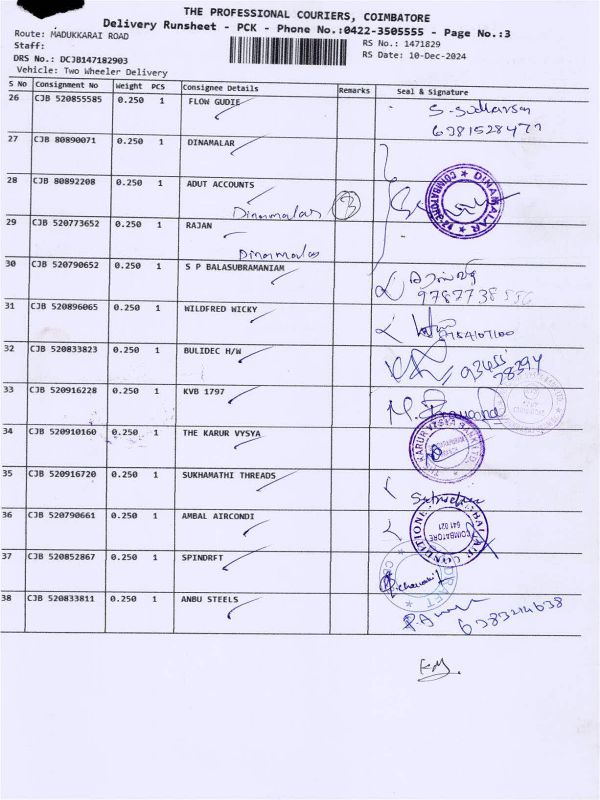 THE PROFESSIONAL COURIERS, COIMBATORE
Delivery Runsheet - PCK - Phone No.:0422-3505555 - Page No.:3
Route: MADUKKARAI ROAD
RS No.: 1471829
Staff:
RS Date: 10-Dec-2024
DRS No.: DCJB147182903
Vehicle: Two Wheeler Delivery
S No Consignment No Weight PCS Consignee Details Remarks Seal & Signature
26 CJB 520855585 0.250 1 FLOW GUDIE
27 CJB 80890071 0.250 1 DINAMALAR
28 CJB 80892208 0.250 1 ADUT ACCOUNTS
Dinamalar
DINAMALAR
29 CJB 520773652 0.250 1 RAJAN
Dinamalar
30 CJB 520790652 0.250 1 S P BALASUBRAMANIAM
31 CJB 520896065 0.250 1 WILDFRED WICKY
32 CJB 520833823 0.250 1 BULIDEC H/W
33 CJB 520916228 0.250 1 KVB 1797
34 CJB 520910160 0.250 1 THE KARUR VYSYA
KARUR VYSYA BANK
35 CJB 520916720 0.250 1 SUKHAMATHI THREADS
36 CJB 520790661 0.250 1 AMBAL AIRCONDI
COIMBATORE
641 021
37 CJB 520852867 0.250 1 SPINDRFT
38 CJB 520833811 0.250 1 ANBU STEELS